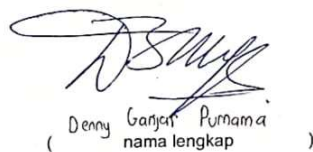 Denny Ganjar Purnama
( nama lengkap )